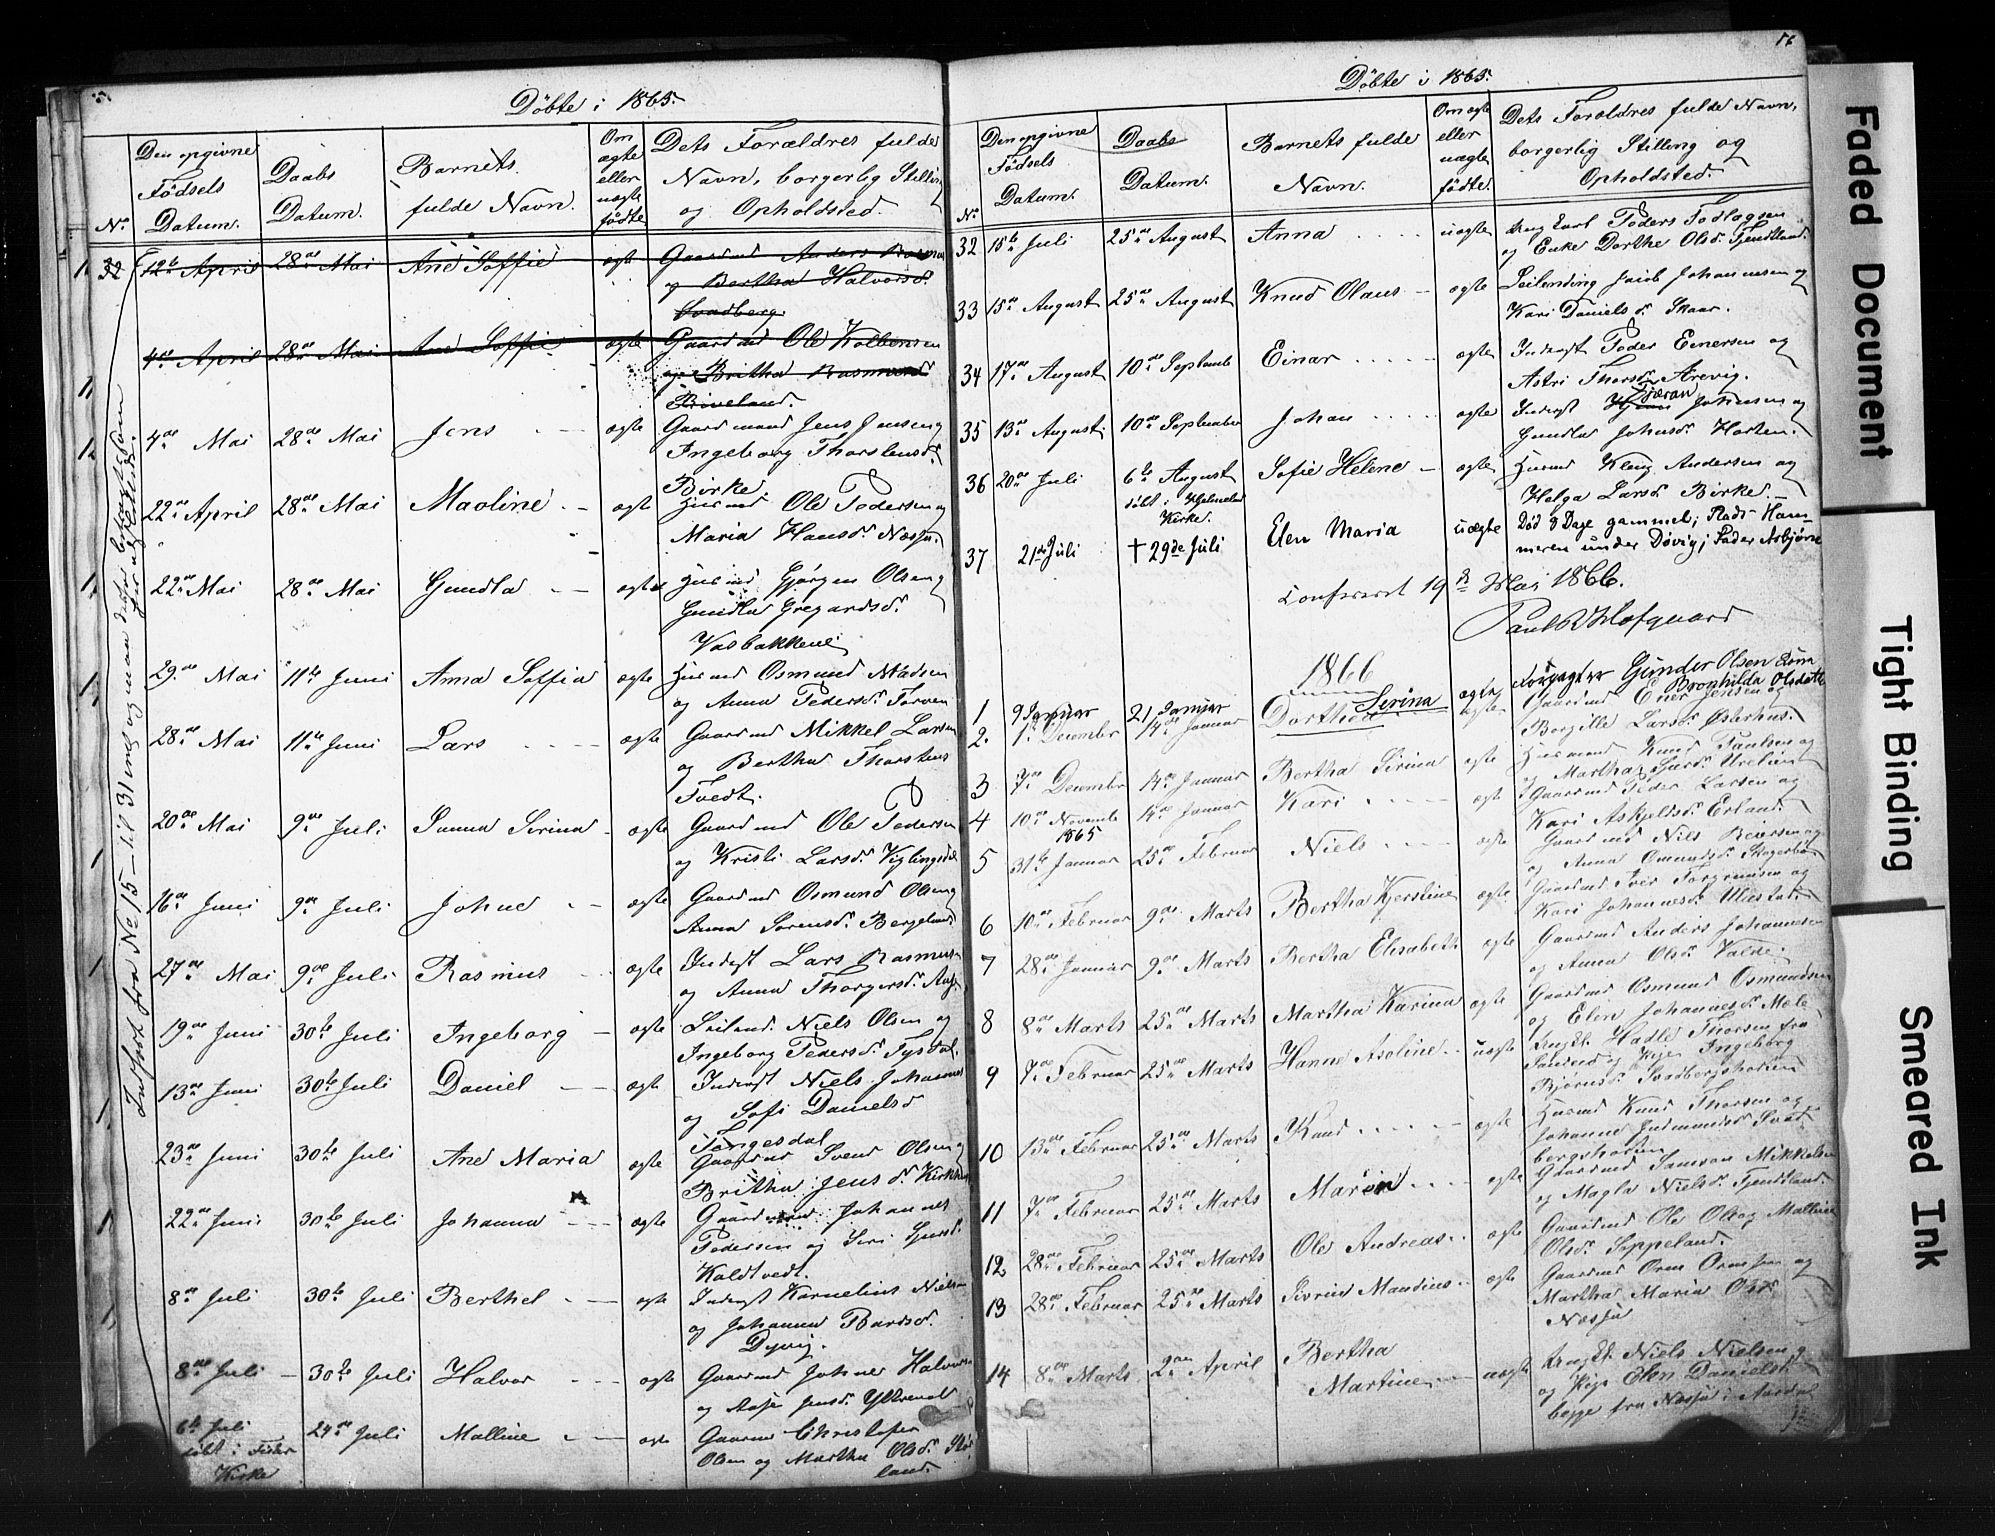 Døbte i 1865.
No
Den opgivne Fødsels Datum.
Daabs Datum.
Barnets fulde Navn.
Om ægte eller uægte fødte
Dets Forældres fulde Navn, borgerlig Stilling og Opholdsted.
12te April 28de Mai Ane Soffie ægte Gaardmd Anders
og Bertha Halvorsd.
Svadberg.
4de April 28de Mai Ane Soffie ægte Gaardmd Ole Kolbensen
og Britha Rasmusd
Riveland.
4de Mai 28de Mai Jens ægte Gaardmand Jens Jensen og
Ingeborg Thorstensd.
Birke
22de April 28de Mai Maoline ægte Husmd Ole Pedersen og
Maria Hansd. Næssa.
22de Mai 28de Mai Gundla ægte Husmd Gjørgen Olsen og
Gundla Gregardsd.
Vasbakkene
29de Mai 11te Juni Anna Soffia ægte Husmd Osmund Madsen
og Anna Pedersd. Torven
28de Mai 11te Juni Lars ægte Gaardmd Mikkel Larsen
og Bertha Thorstens
Tvedt.
20de Mai 9de Juli Sanna Serina ægte Gaardmd Ole Pedersen
og Kristi Larsd. Viglingsdal
16de Juni 9de Juli Johne ægte Gaardmd Osmund Olsen og
Anna Sørensd. Bergeland
27de Mai 9de Juli Rasmus ægte Inderst Lars Rasmusen
og Anna Thorgersd.
19de Juni 30te Juli Ingeborg ægte Leilend. Niels Olsen og
Ingeborg Pedersd. Tysdal.
13de Juni 30te Juli Daniel ægte Inderst Niels Johannes
og Sofi Danielsd
Tengesdal
23de Juni 30te Juli Ane Maria ægte Gaardmd Svend Olsen og
Britha Jensd.
22de Juni 30te Juli Johanna ægte Gaardmand Johannes
Pedersen og Seri
Kaldtvedt.
8de Juli 30te Juli Berthel ægte Inderst Kornelius Nielsen
og Johanna Bardsd.
Døvig.
8de Juli 30te Juli Halvor ægte Gaardmd Johnes Halvorsen
og Aase Jensd.
6te Juli 24de Juli Malline ægte Gaardmd Christofer
døbt i Fister Olsen og Martha Olsd.
Kirke land.
Indført fra No 15 til 31 og man
Døbte i 1865.
No
Den opgivne Fødsels Datum.
Daabs Datum.
Barnets fulde Navn.
Om ægte eller uægte fødte.
Dets Forældres fulde Navn, borgerlig Stilling og Opholdsted.
32 15te Juli 25de August Anna uægte Ungkarl Peders
og Enke Dorthe Olsd. Tjendtland.
33 15de August 25de August Knud Olaus ægte Leilending Jacob Johannesen og
Kari Danielsd. Skaar.
34 17de August 10de September Einar ægte Inderst Peder Einersen og
Astri Thorsd. Arevig.
35 13de August 10de September Johan ægte Inderst Tjæran Johnsen og
Gundla Johnsd. Horten.
36 20de Juli 6te August Sofie Helene ægte Husmd Kleng Andersen og
døbt i Hjelmeland Kirke. Helga Larsd. Birke.
37 21de Juli † 29de Juli Elen Maria uægte Død 8 Dage gammel; Plads Ham-
meren under Døvig; Fader Asbjørn
Confereret 19de Mai 1866.
Paul Hofgaard
1866
1 9 Januar 21 Januar Serina ægte Forpagter Gunder Olsen
Bronhilda Olsdatter
2. 1ste December 14de Januar Dorthea ægte Gaardmd Einer Jensen og
Borgille Larsd. Østerhus.
3 7de December 14de Januar Bertha Serina ægte Husmand Knud Paulsen og
Martha
4 10de November 1865 14de Januar Kari ægte Gaardmd Peder Larsen og
Kari Askjeldsd. Erland.
5 31te Januar 25de Februar Niels ægte Gaardmd Niels Beiersen og
Anna Omundsd.
6 10de Februar 9de Marts Bertha Kjerstine ægte Gaardmd Iver Torgeirsen og
Kari Johannesd. Ulestad.
7 28de Januar 9de Marts Bertha Elisabeth ægte Gaardmd Anders Johannesen
og Anna Olsd. Valde.
8 8de Marts 25de Marts Martha Karina ægte Gaardmd Osmund Osmundsen
og Elen Johannesd. Mæle
9 7de Februar 25de Marts Hanne Asoline uægte Ungkl. Hadle Thorsen fra
Sandeid og Pige Ingeborg
Bjørnsd. Svadbergshodien
10 13de Februar 25de Marts Knud ægte Husmd Knud Thorsen og
Johanne Gudmundsd. Svad
bergshodien
11 7de Februar 25de Marts Maren ægte Gaardmd Samson Mikkelsen
og Magla Nielsd. Tjendtland.
12 28de Februar 25de Marts Ole Andreas ægte Gaardmd Ole Olsen og Malline
Olsd. Soppeland.
13 28de Februar 25de Marts Sivrin Mandius ægte Gaardmd Orm Ormsen og
Martha Maria Olsd
Næssa
14 8de Marts 2den April Bertha Martine uægte Ungkl. Niels Nielsen
og Pige Elen Danielsd.
begge fra Næssa i Aardal
Faded Document
Tight Binding
Smeared Ink